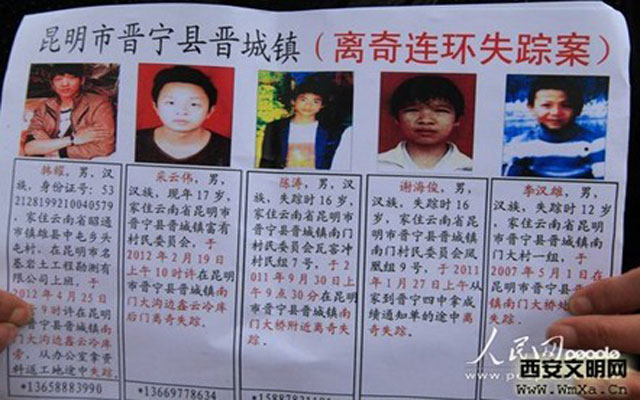 昆明市晋宁县晋城镇（离奇连环失踪案）
韩耀，男，汉
族，身份证号：53
2128199210040579，
家住云南省昭通
市镇雄县中屯乡头
屯村。在昆明市名
基岩土工程勘测有
限公司上班，于
2012年4月25日
9时许在昆明
市晋宁县晋城镇南
门大沟边鑫云冷库
旁，从办公室拿资
料返工地途中失踪。
*13658883990
采云伟，男，汉
族，现年17岁，
家住云南省昆明市
晋宁县晋城镇富有
村民委员会，于
2012年2月19日
上午10时许在昆明
市晋宁县晋城镇南
门大沟边鑫云冷库
后门离奇失踪。
*13669778634
陈涛，男，汉
族，失踪时16岁，
家住云南省昆明市
晋宁县晋城镇南门
村民委员会瓦窑冲
村民组7号，于2
011年9月30日上
午9点30分在昆明
市晋宁县晋城镇南
门大桥附近离奇失
踪。
谢海俊，男，汉
族，失踪时16岁，
家住云南省昆明市
晋宁县晋城镇南门
村民委员会村民凤
凰组9号，于2011
年1月27日上午从
家到晋宁四中拿成
绩通知单的途中离
奇失踪。
李汉雄，男，汉
族，失踪时12岁，
家住云南省昆明市
晋宁县晋城镇南门
大村一组，于
2007年5月1日在
昆明市晋宁县晋城镇
南门大桥处
失踪。
人民网
people
西安文明网
Www.WmXa.Cn